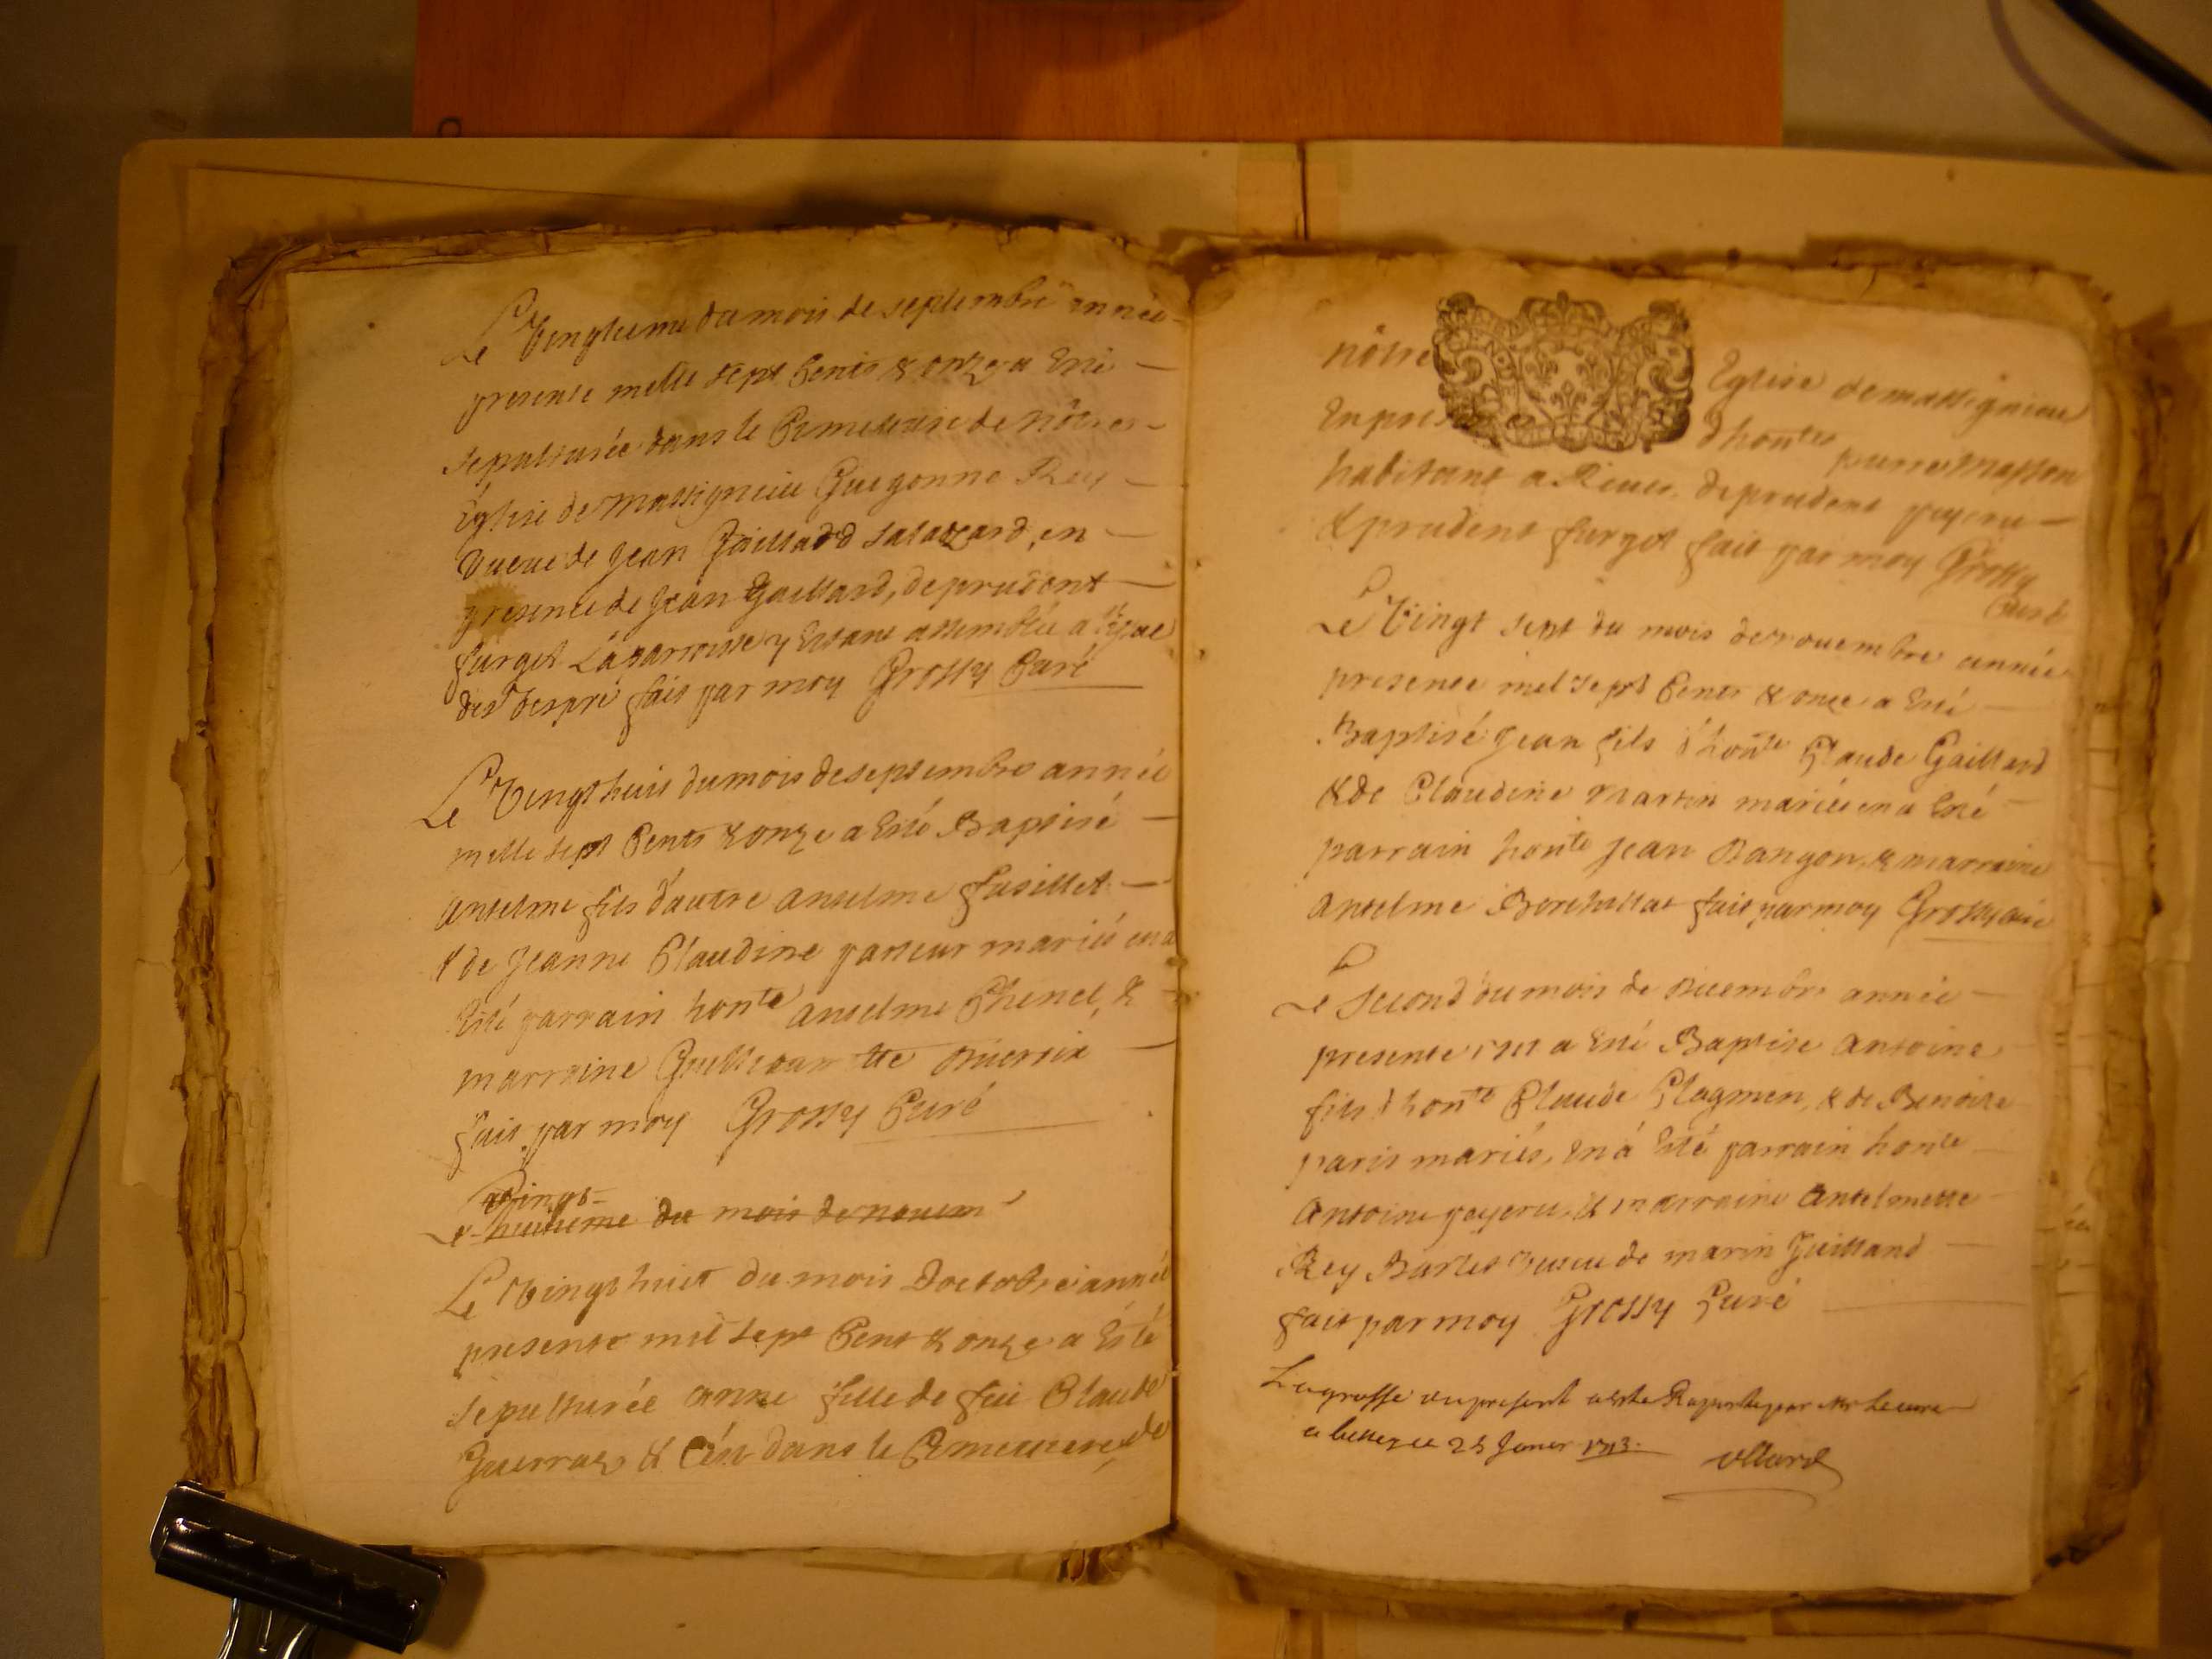 Le Vingtieme du mois de septembre année
presente mille sept Cents & onze a Esté
sepulturée dans le Cimetiere de nôtre
Église de Massignieu Guigonne Rey
Vueue de Jean Gaillard en
presence de Jean Gaillard, de prudent
furget La parroisse y Estant assemblée a
des fait par moy Grossy Curé
Le Vingt huit du mois de septembre année
mille sept Cents & onze a Esté Baptisé
Antelme fils d'autre Antelme fusillet
& de Jeanne Claudine pasteur mariés en a
Esté parrain honte Antelme Chenet, &
marraine
fait par moy Grossy Curé
Vingt
Le huitieme du mois de nouem
Le Vingt huit du mois Doctobre année
presente mil sept Cent & onze a Esté
sepulturée Anne fille de feu Claude
Guerraz & Cés dans le Cimetiere de
nôtre Eglise de massignieu
En presence d'honte pierre masson
habitant a Rieues, de prudent payeru
& prudent furget fait par moy Grossy
Curé
Le Vingt sept du mois de nouembre année
presente mil sept Cents & onze a Esté
Baptisé Jean fils d'honte Claude Gaillard
& de Claudine Martin mariés en a Esté
parrain honte Jean Dangon & marraine
Antelme fait par moy Grossy curé
Le Second du mois de decembre année
presente 1711 a Esté Baptise Antoine
fils d'honte Claude Clagmen, & de Benoite
paris mariés, En á Esté parrain honte
Antoine payeru, & marraine Antelmette
Rey Barlet vueue de marin Juilland
fait par moy Grossy Curé
La grosse du present a este Raportée par Mr Le cure
a belley ce 25 Januier 1713.